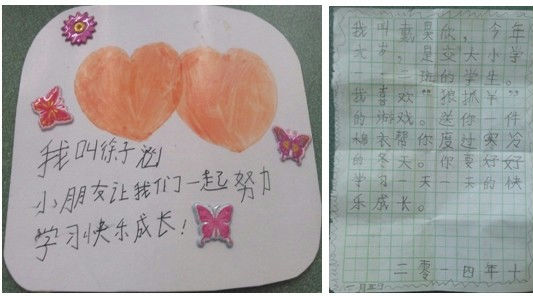 我叫徐子
小朋友让我们一起努力
学习快乐成长!
我叫戴昊欣,今年
六岁,是交大小学
一·二班的学生。
我喜欢“狼抓羊”
的游戏。送你一件
棉衣帮你度过寒冷
的冬天。你要好好
学习一天一天的快
乐成长。
二零一四年十
一月